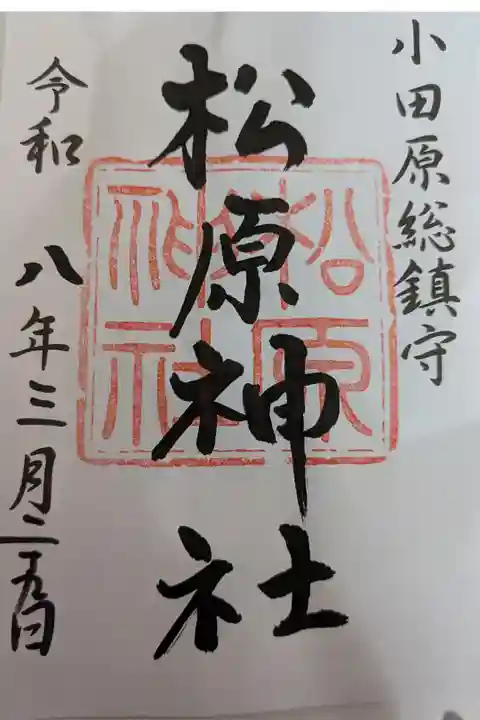 小田原総鎮守
松原神社
松原神社
令和八年三月二十九日